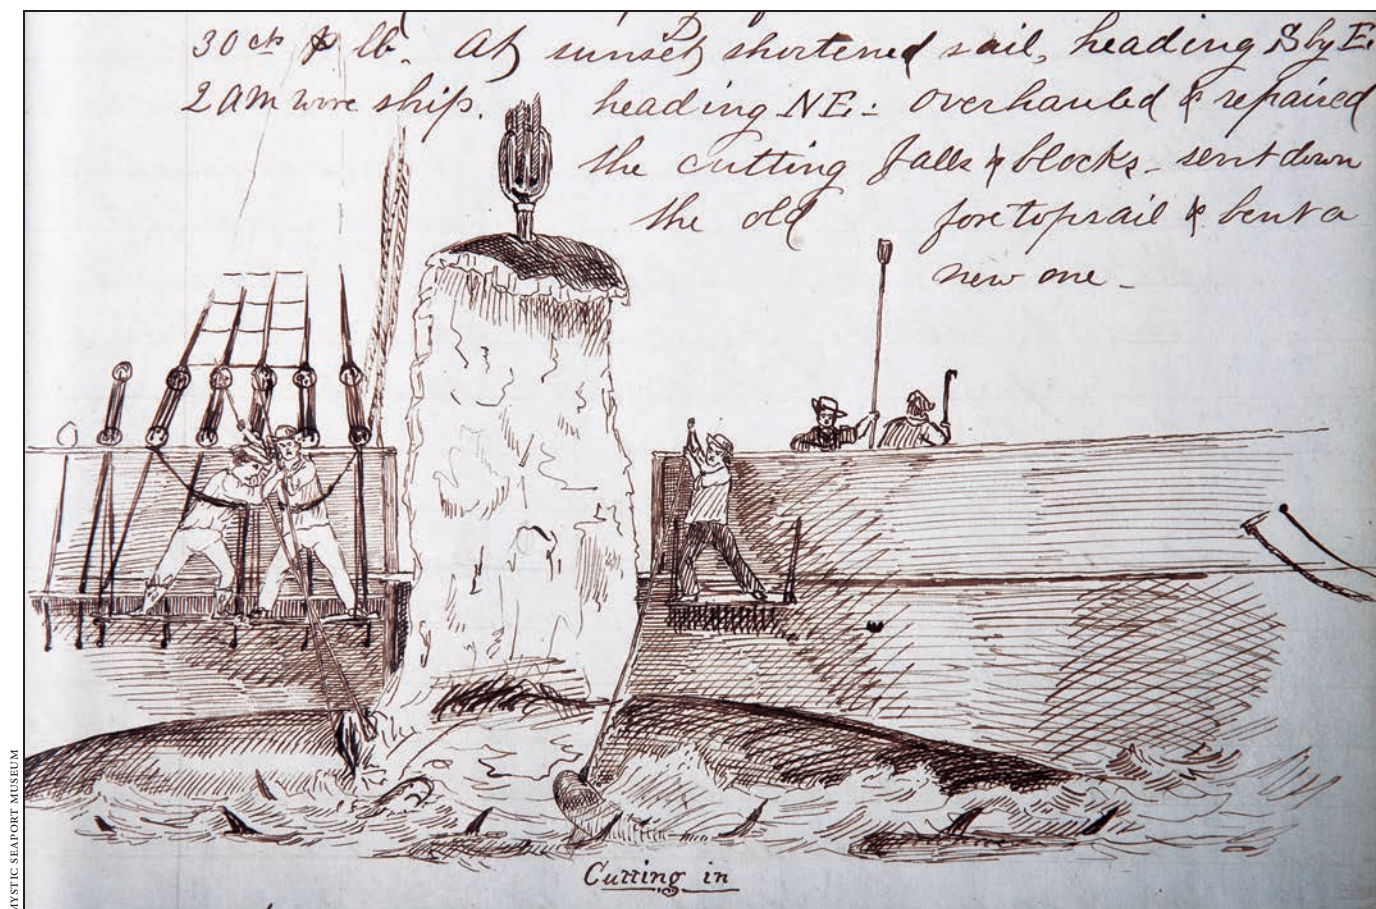 30 cts ⅌ lb. At sunset shortened sail, heading S by E.
2 am wore ship. heading NE:- overhauled & repaired
the cutting falls & blocks - sent down
the old fore topsail & bent a
new one -
Cutting in
MYSTIC SEAPORT MUSEUM